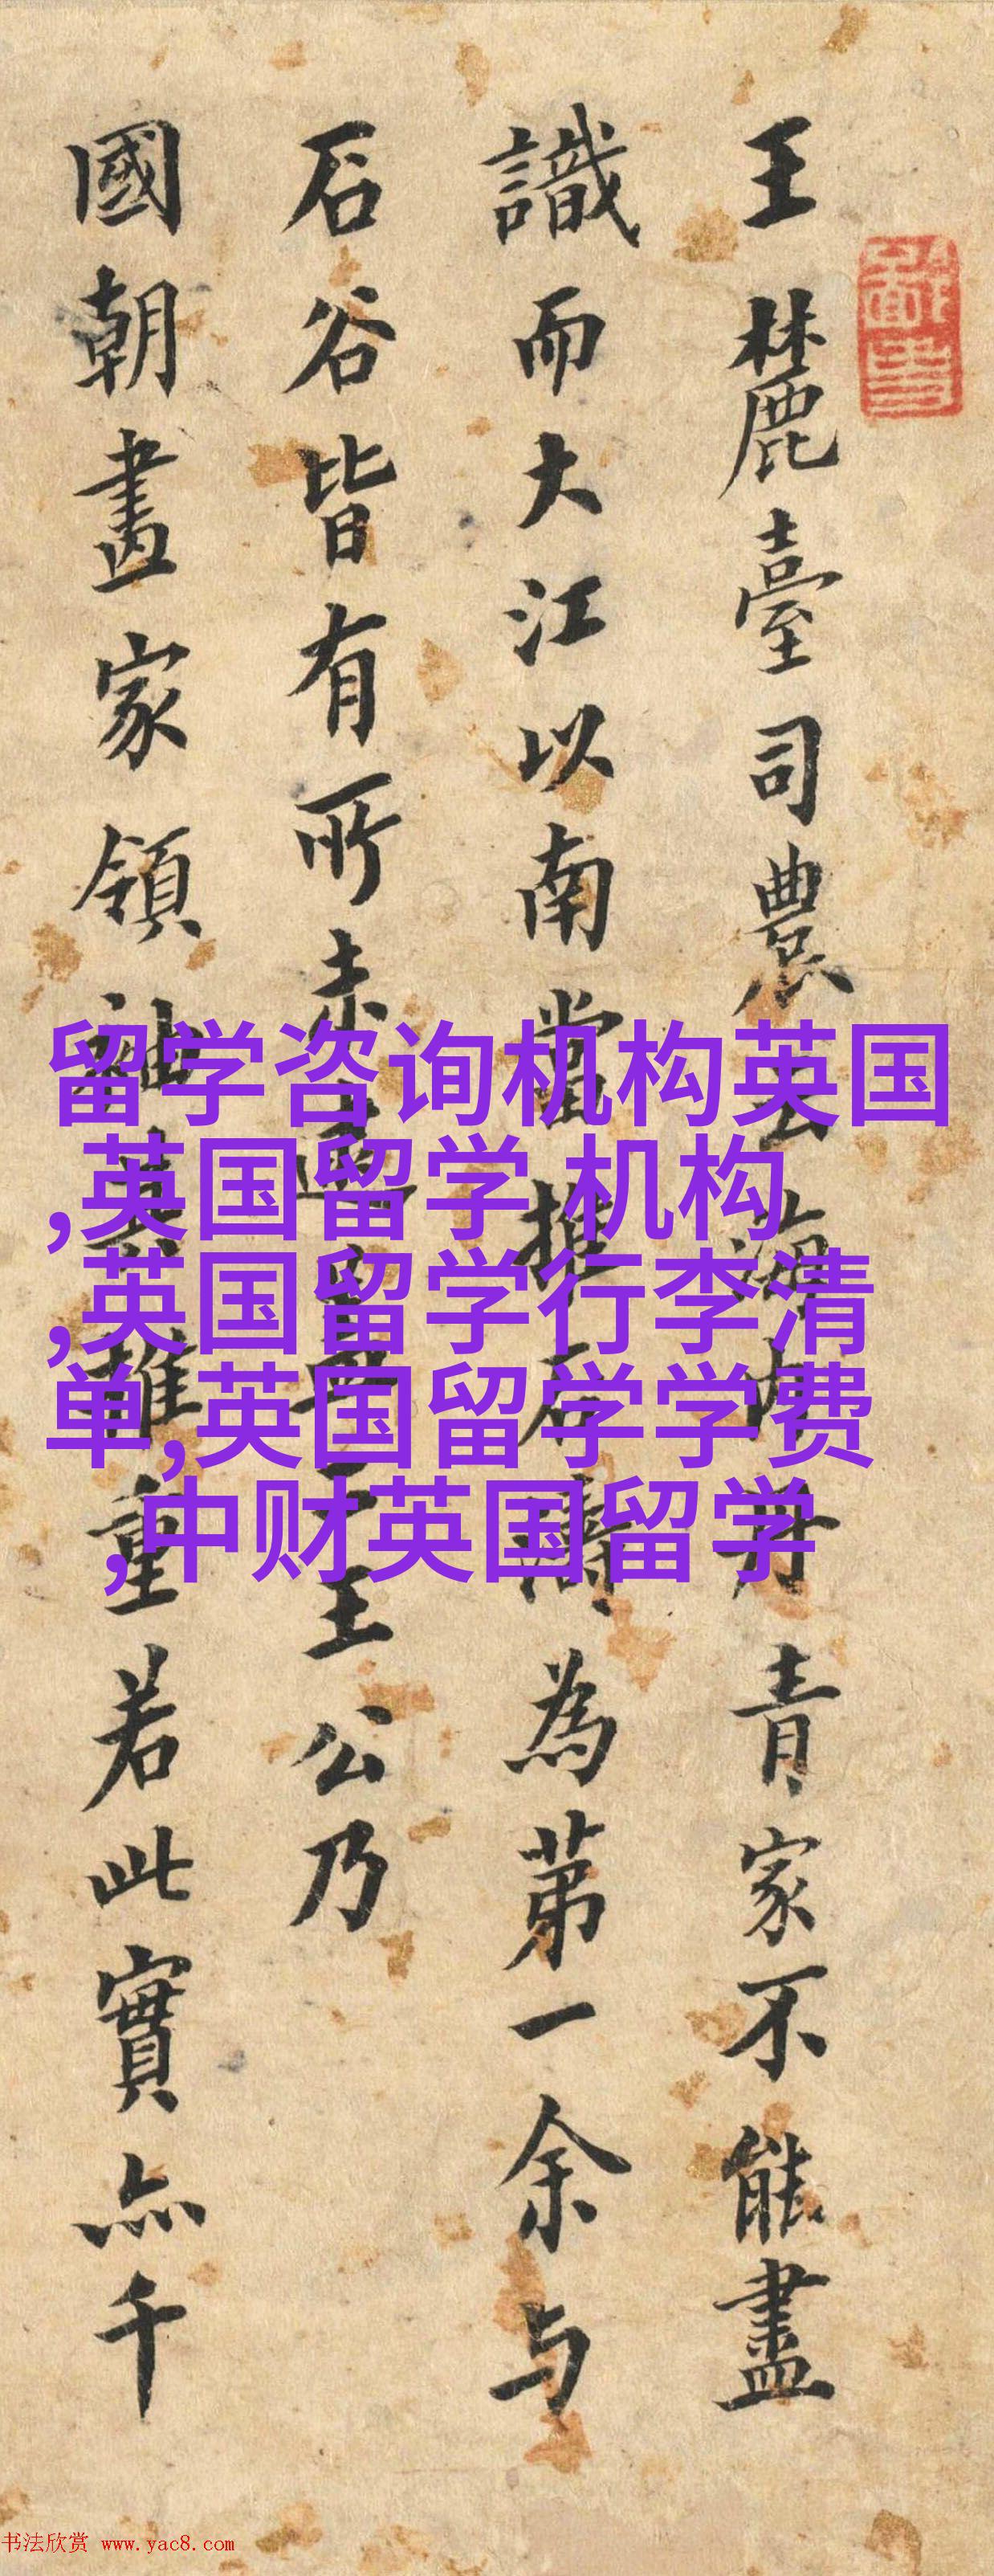 王麓臺司農云海内丹青家不能盡
識而大江以南當推石濤為第一余与
石谷皆有所未逮
王公乃
國朝畫家領袖
重若此實亦千
留学咨询机构英国
,英国留学 机构
,英国留学行李清
单,英国留学学费
,中财英国留学
书法欣赏 www.yac8.com